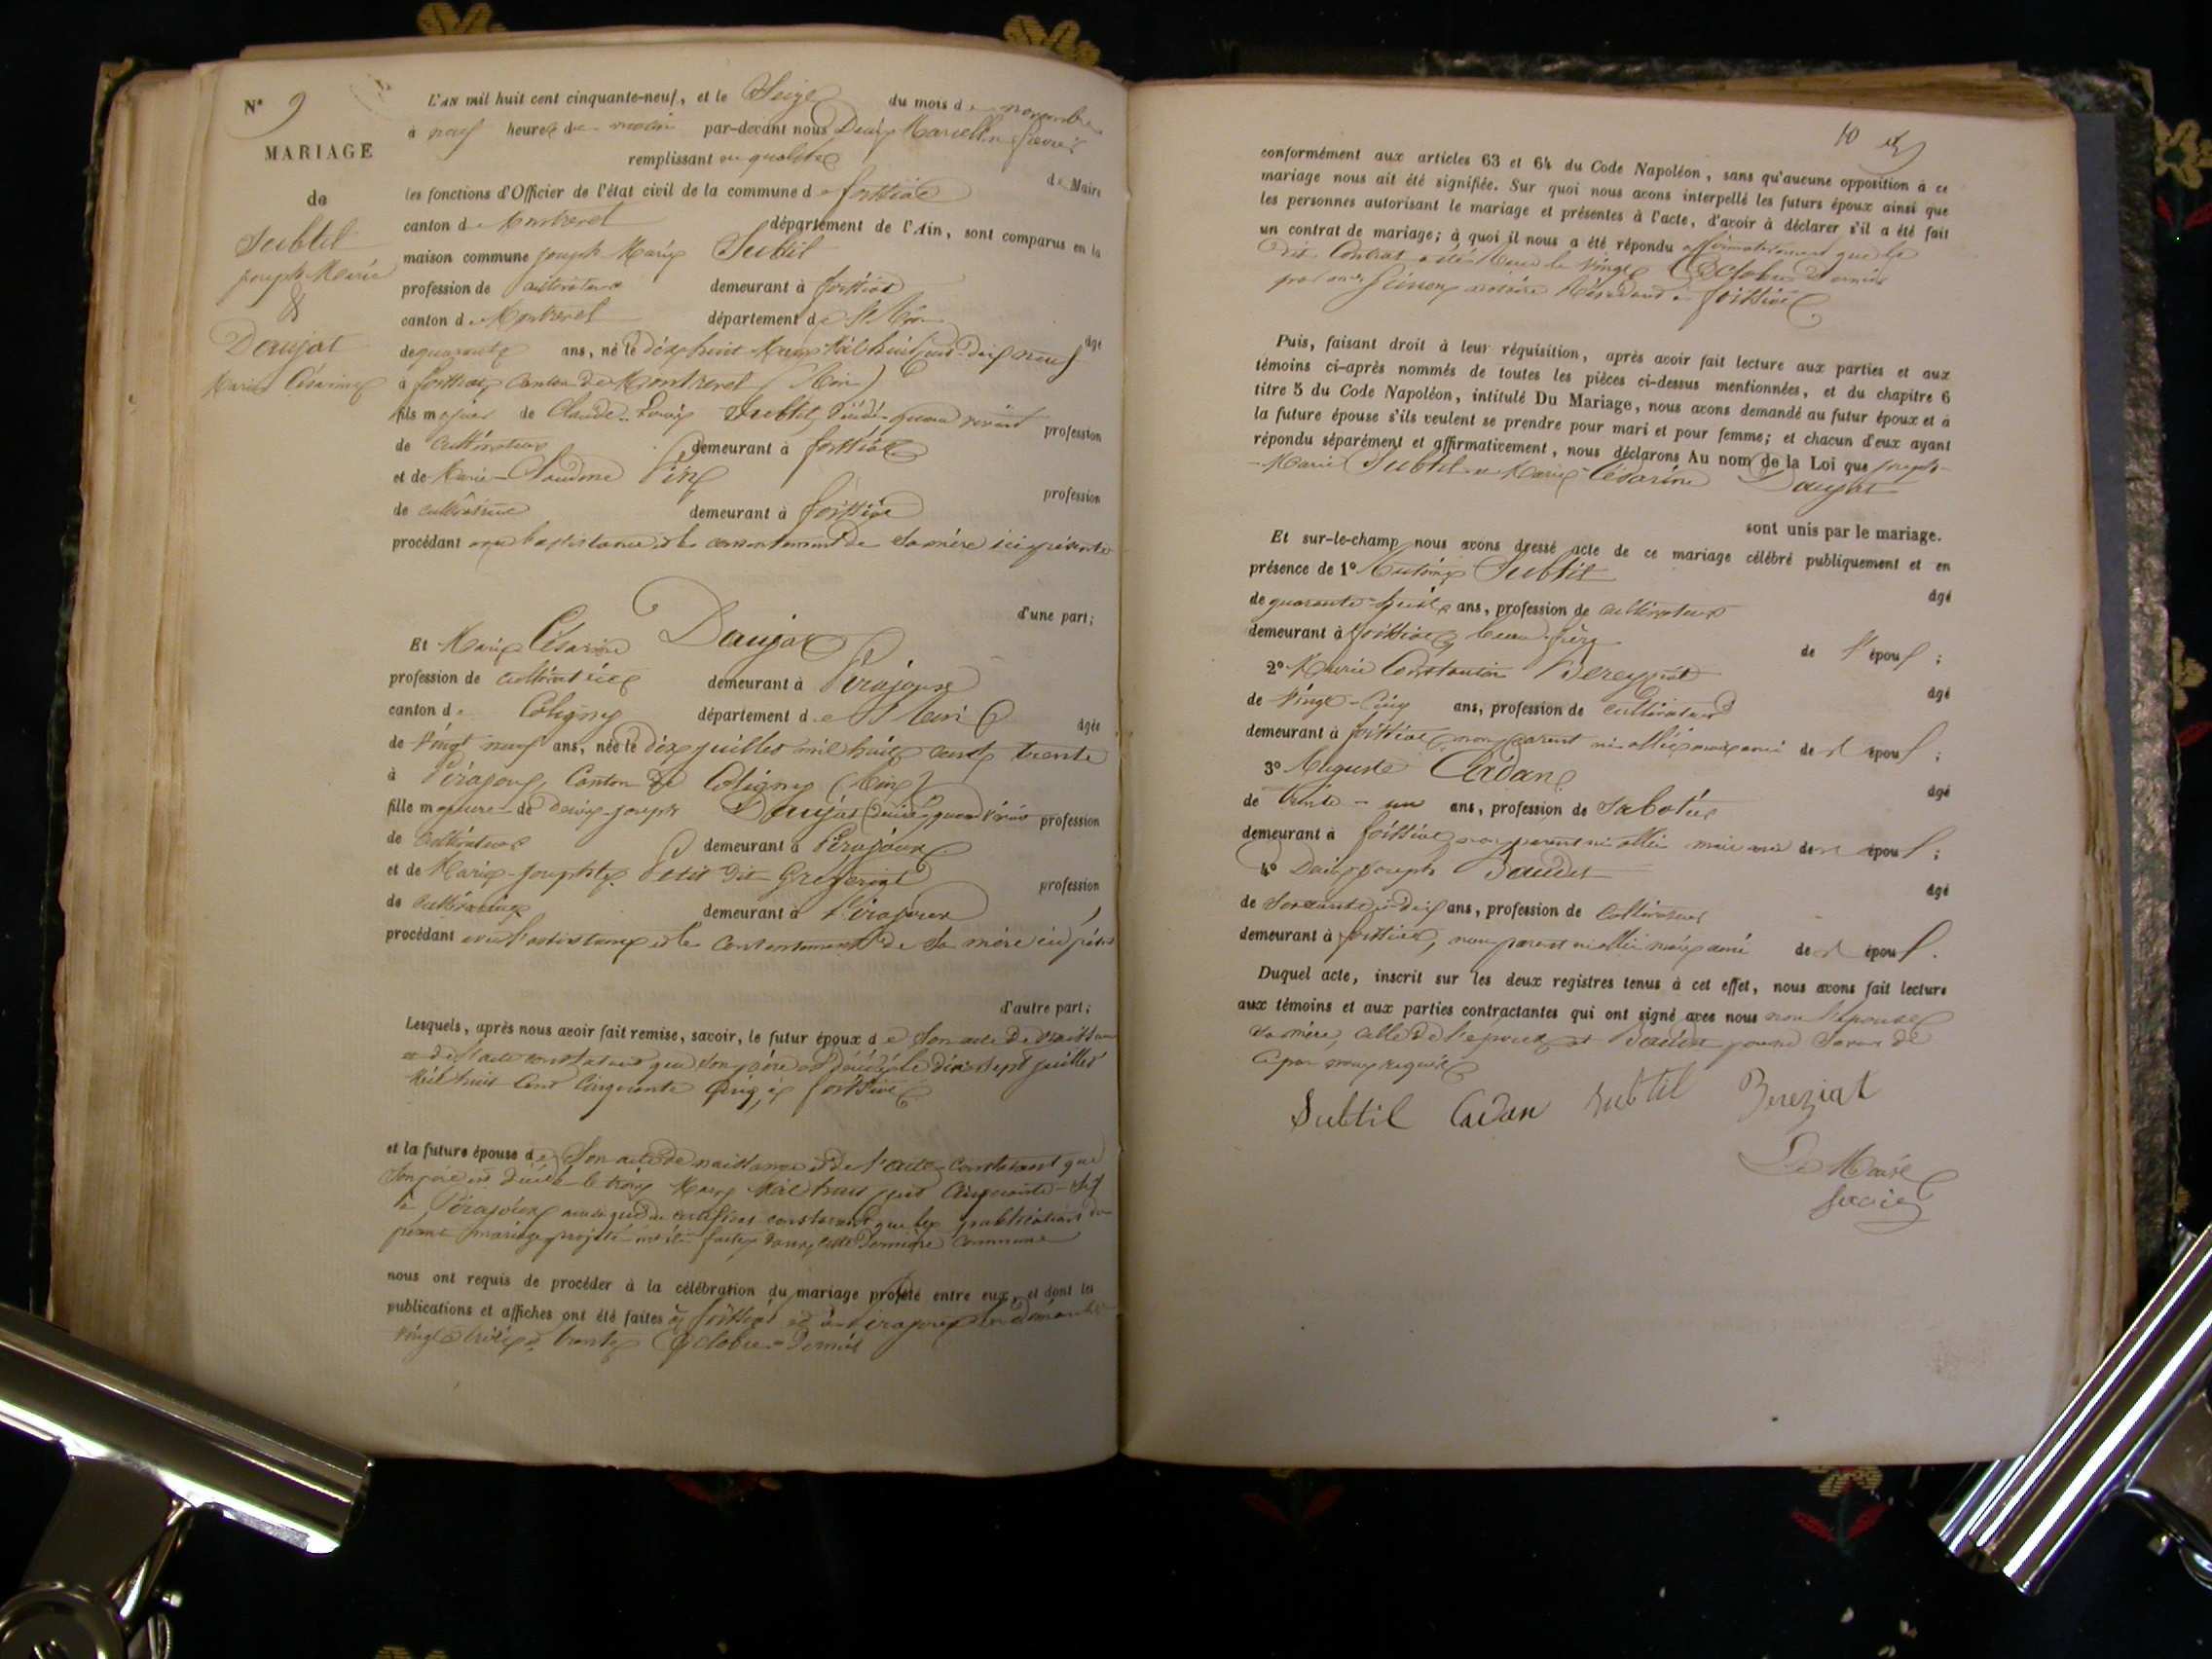 N° 9
MARIAGE
de
Subtil
joseph Marie
&
Daujat
Marie Césarine
L'an mil huit cent cinquante-neuf, et le Seize du mois de novembre
à neuf heures du matin par-devant nous Denis Marcellin
remplissant en qualité de Maire
les fonctions d'Officier de l'état civil de la commune de foissiat
canton de Montrevel département de l'Ain, sont comparus en la
maison commune joseph Marie Subtil
profession de cultivateur demeurant à foissiat
canton de Montrevel département de l'Ain âgé
de quarante ans, né le dix huit Mars Mil huit cent dix neuf
à foissiat, Canton de Montrevel (Ain)
fils majeur de Claude Louis Subtil, décédé quand vivait profession
de cultivateur demeurant à foissiat
et de Marie Claudine profession
de cultivatrice demeurant à foissiat
procédant avec l'assistance et le consentement de sa mère ici présente
d'une part;
Et Marie Césarine Daujat
profession de cultivatrice demeurant à Pirajoux
canton de Coligny département de l'Ain âgée
de vingt neuf ans, née le dix juillet mil huit cent trente
à Pirajoux, Canton de Coligny (Ain)
fille majeure de Denis joseph Daujat décédé quand vivait profession
de cultivateur demeurant à Pirajoux
et de Marie josephte Petit dit profession
de cultivatrice demeurant à Pirajoux
procédant avec l'assistance et le consentement de sa mère ici
d'autre part;
Lesquels, après nous avoir fait remise, savoir, le futur époux de Son acte de naissance
et de l'acte constatant que son père est décédé le dix sept juillet
Mil huit Cent Cinquante Cinq, à foissiat
et la future épouse de Son acte de naissance et de l'acte constatant que
Son père est décédé le trois Mars Mil huit cent Cinquante
à Pirajoux ainsi que du certificat constatant que les publications du
présent mariage projeté ont été faites dans cette dernière commune
nous ont requis de procéder à la célébration du mariage projeté entre eux, et dont les
publications et affiches ont été faites à foissiat et à Pirajoux les dimanches
vingt trois et trente Octobre dernier
10
conformément aux articles 63 et 64 du Code Napoléon, sans qu'aucune opposition à ce
mariage nous ait été signifiée. Sur quoi nous avons interpellé les futurs époux ainsi que
les personnes autorisant le mariage et présentes à l'acte, d'avoir à déclarer s'il a été fait
un contrat de mariage; à quoi il nous a été répondu affirmativement que le
dit Contrat a été reçu le vingt Octobre dernier
par notaire Résidant à foissiat
Puis, faisant droit à leur réquisition, après avoir fait lecture aux parties et aux
témoins ci-après nommés de toutes les pièces ci-dessus mentionnées, et du chapitre 6
titre 5 du Code Napoléon, intitulé Du Mariage, nous avons demandé au futur époux et à
la future épouse s'ils veulent se prendre pour mari et pour femme; et chacun d'eux ayant
répondu séparément et affirmativement, nous déclarons Au nom de la Loi que joseph
Marie Subtil et Marie Césarine Daujat
sont unis par le mariage.
Et sur-le-champ nous avons dressé acte de ce mariage célébré publiquement et en
présence de 1° Antoine Subtil âgé
de quarante huit ans, profession de cultivateur
demeurant à foissiat, beau frère de l'époux;
2° Marie Constantin Bereyziat âgé
de vingt cinq ans, profession de cultivateur
demeurant à foissiat, non parent ni allié mais ami de l'époux;
3° Auguste Cadan âgé
de trente un ans, profession de Sabotier
demeurant à foissiat, non parent ni allié mais ami de l'époux;
4° Denis joseph Baudet âgé
de soixante dix ans, profession de cultivateur
demeurant à foissiat, non parent ni allié mais ami de l'époux.
Duquel acte, inscrit sur les deux registres tenus à cet effet, nous avons fait lecture
aux témoins et aux parties contractantes qui ont signé avec nous non l'épouse
sa mère, celle de l'époux et Baudet pour ne savoir de
ce par nous requis
Subtil Cadan Subtil Bereziat
Le Maire